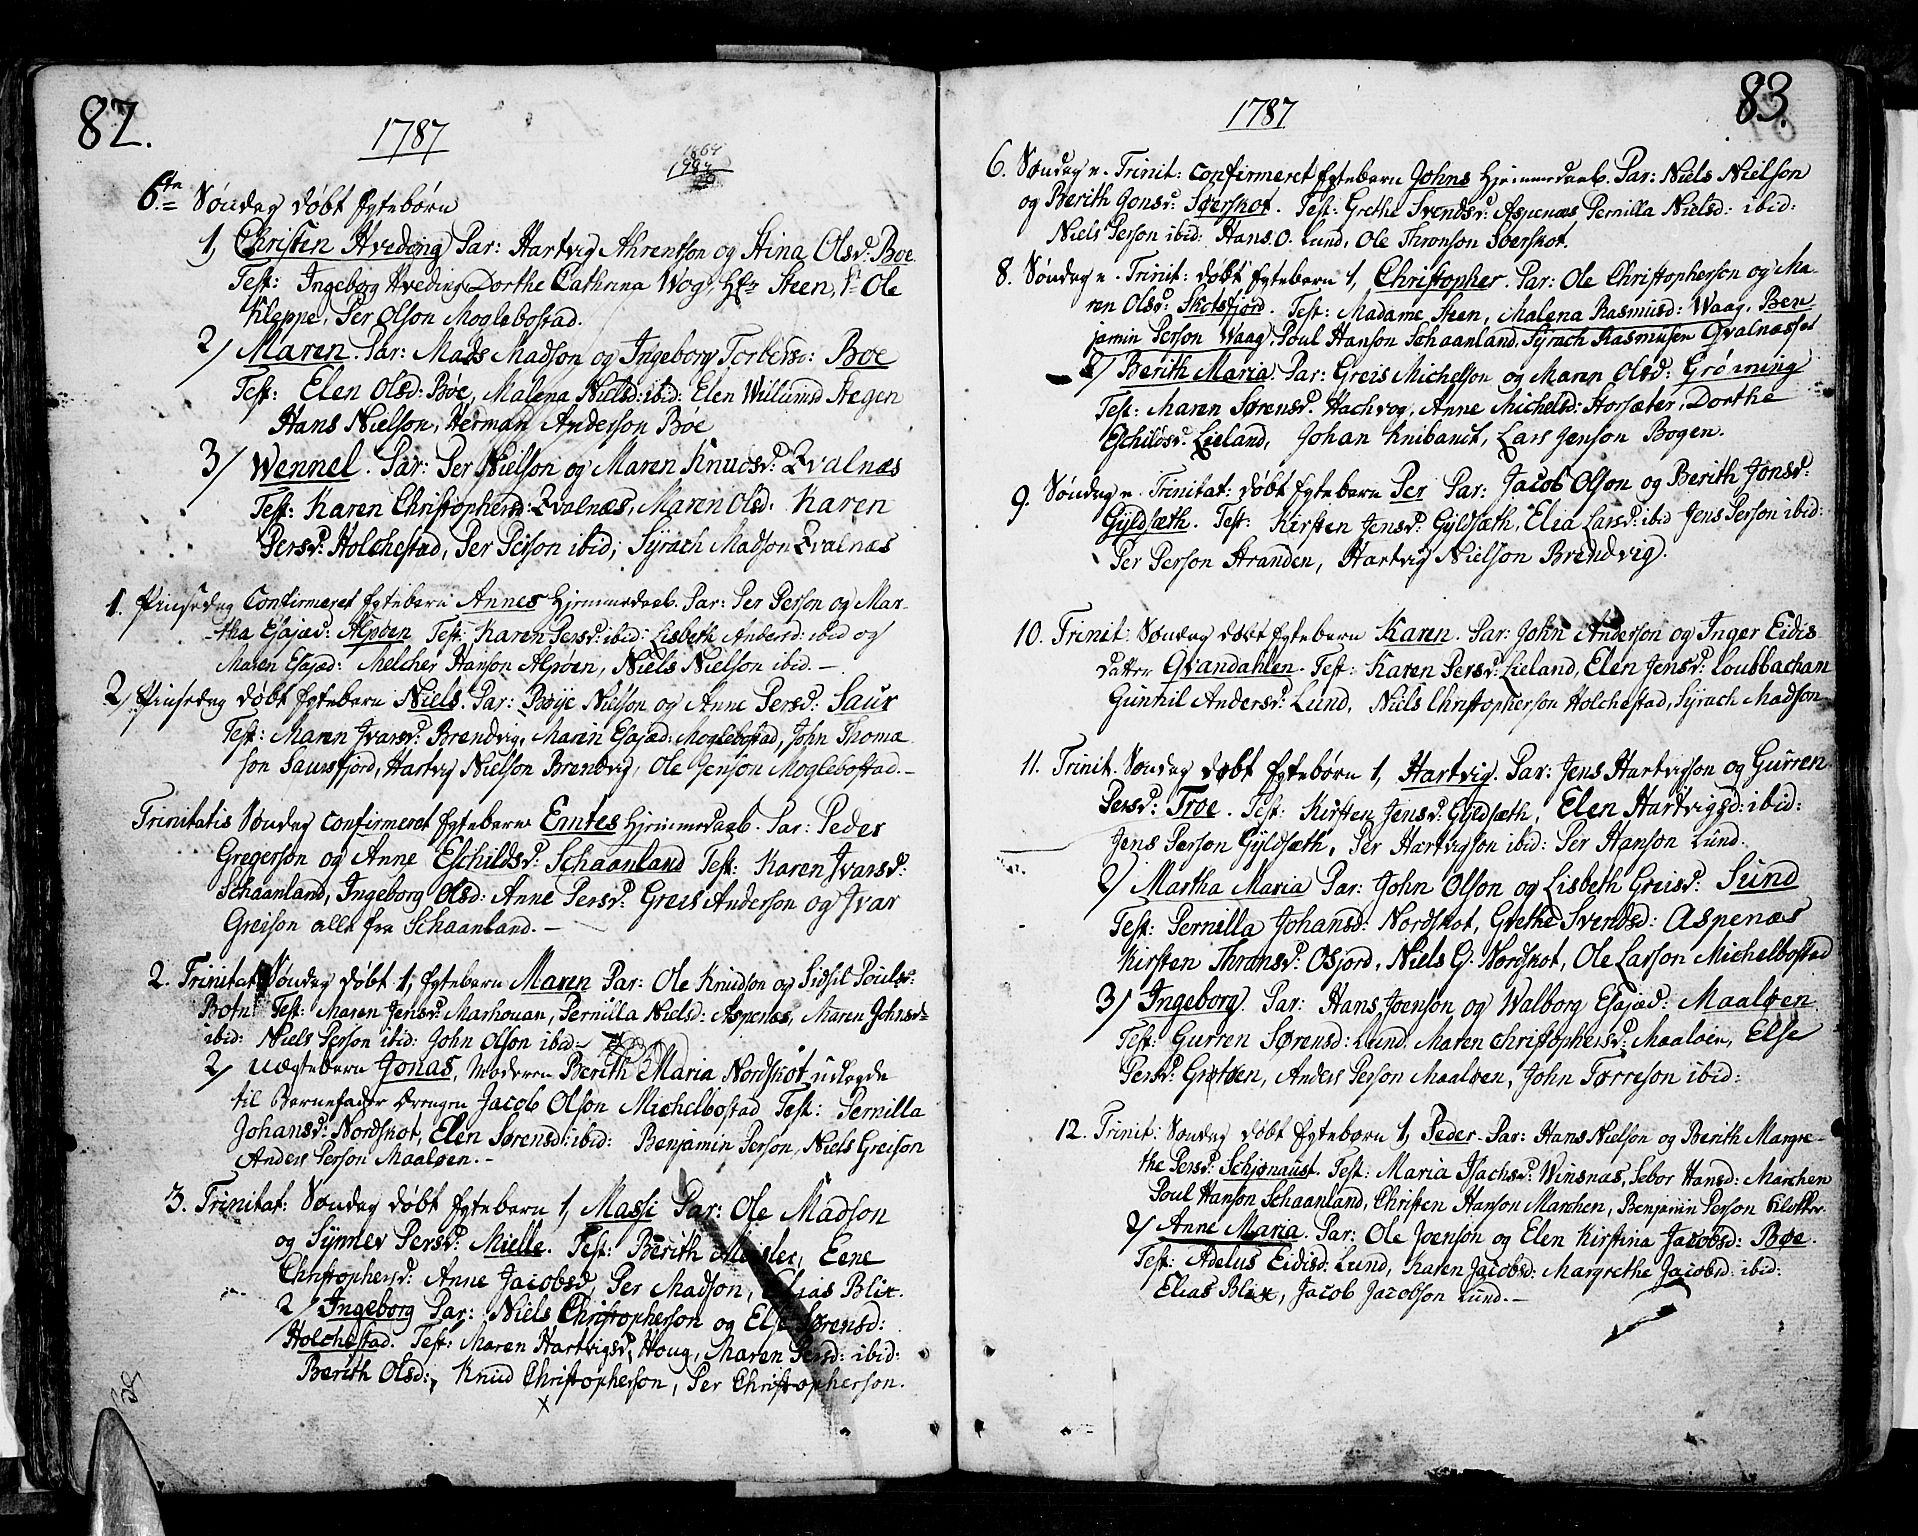 82.
1787
6te Søndag døbt Egtebørn
1, Christen Hveding Par: Hartvig Ahrentson og Stina Olsd: Boe
Test: Ingeborg Hveding Dorthe Cathrina Wog, Hr Steen, Ole
Kleppe, Per Olson Moglebostad.
2/ Maren. Par: Mads Madson og Ingeborg Torbersd: Boe
Test: Elen Olsd: Bøe, Malena Nielsd: ibid: Elen Willumsd Stegen
Hans Nielson, Herman Anderson Bøe
3/ Wennel. Par: Per Nielson og Maren Knudsd: Qvalnæs
Test: Karen Christophersd: Qvalnæs, Maren Olsd. Karen
Persd: Holchestad, Per Person ibid; Syrach Madson Qvalnæs
1. Pinsedag Confirmeret Egtebarn Annes Hjemmedaab. Par: Per Person og Mar-
tha Esajæd: Alpøen Test: Karen Persd: ibid: Lisbeth Andersd: ibid og
Maren Esajæd: Melcher Hanson Alpøen, Niels Nielson ibid. –
2/ Pinsedag døbt Egtebarn Niels. Par: Bøye Nielson og Anne Persd: Saur
Test: Maren Ivarsd: Brendvig, Maren Esajæd: Moglebostad, John Thoma
son Saursfjord, Hartvig Nielson Brendvig, Ole Jenson Moglebostad. –
Trinitatis Søndag confirmeret Egtebarn Enntes Hjemmedaab. Par: Peder
Gregerson og Anne Eschildsd: Schaanland Test: Karen Ivarsd:
Schaanland, Ingeborg Olsd: Anne Persd: Greis Anderson og Ivar
Greison alle fra Schaanland. –
2. Trinitat: Søndag døbt 1, Egtebarn Maren Par: Ole Knudson og Sidsil Poulsd:
Botn Test: Maren Jensd: Marhouan, Pernilla Nielsd: Aspenæs, Maren Johnsd:
ibid: Niels Person ibid: John Olson ibid –
2/ uægtebarn Jonas, Moderen Berith Maria Nordskot udlegde
til Barnefader Drengen Jacob Olson Michelbostad Test: Pernilla
Johansd: Nordskot, Elen Sørensd: ibid: Benjamin Person, Niels Greison
Anders Person Maaløen. –
3. Trinitat: Søndag døbt Egtebørn 1, Massi Par: Ole Madson
og Synnev Persd: Mielle. Test: Berith Meisler, Eene
Christophersd: Anne Jacobsd, Per Madson, Elias Blix.
2/ Ingeborg Par: Niels Christopherson og Else Sørensd:
Holchestad. Test: Maren Hartvigsd, Houg, Maren Persd: ibid:
Berith Olsd:, Knud Christopherson, Per Christopherson.
83.
1787
6. Søndag e. Trinit: confirmeret Egtebarn Johns Hjemmedaab. Par: Niels Nielson
og Berith Jonsd: Soerskot. Test: Grethe Svendsd: Aspenæs Pernilla Nielsd: ibid:
Niels Person ibid: Hans O. Lund, Ole Thronson Soerskot.
8. Søndag e. Trinit: døbt Egtebørn 1, Christopher. Par: Ole Christopherson og Ma-
ren Olsd: Skotsfjord. Test: Madame Steen, Malena Rasmusd: Waag, Ben
jamin Person Waag, Poul Hanson Schaanland, Syrach Rasmusen Qvalnæsset
2/ Berith Maria. Par: Greis Michelson og Maren Olsd: Grønning
Test: Maren Sørensd: Hachvog, Anne Michelsd: Horsæter, Dorthe
Eschildsd: Lieland, Johan Knibandt, Lars Jenson Bogen.
9. Søndag e. Trinitat: døbt Egtebarn Per Par: Jacob Olson og Berith Jonsd:
Gyldsæth. Test: Kirsten Jensd: Gyldsæth, Elia Larsd: ibid Jens Person ibid:
Per Person Stranden, Hartvig Nielson Brendvig.
10. Trinit: Søndag døbt Egtebarn Karen. Par: John Anderson og Inger Eidis
datter Qvandahlen. Test: Karen Persd: Lieland, Elen Jensd: Loubbachan
Gunnil Andersd: Lund, Niels Christopherson Holchestad, Syrach Madson
11. Trinit. Søndag døbt Egtebørn 1, Hartvig. Par: Jens Hartvigson og Gurren
Persd: Troe. Test: Kirsten Jensd: Gyldsæth, Elen Hartvigsd: ibid:
Jens Person Gyldsæth, Per Hartvigson ibid: Per Hanson Lund.
2/ Martha Maria Par: John Olson og Lisbeth Greisd: Sund
Test: Pernilla Johansd: Nordskot, Grethe Svendsd: Aspenæs
Kirsten Thronsd: Osjord, Niels G. Nordskot, Ole Larson Michelbostad
3/ Ingeborg. Par: Hans Joenson og Walborg Esajæd: Maaløen
Test: Gurren Sørensd: Lund. Maren Christophersd: Maaløen, Else
Persd: Grøtøen, Anders Person Maaløen, John Tørreson ibid:
12. Trinit: Søndag døbt Egtebørn 1, Peder. Par: Hans Nielson og Berith Margre-
the Persd: Schjønaust. Test: Maria Isachsd: Winsnæs, Sebor Hansd: Marchen
Poul Hanson Schaanland, Christen Hanson Marchen, Benjamin Person Kloster.
2/ Anne Maria. Par: Ole Joenson og Elen Kirstina Jacobsd: Bøe.
Test: Adelus Eidisd: Lund, Karen Jacobsd: Margrethe Jacobsd: ibid:
Elias Blix, Jacob Jacobson Lund. –